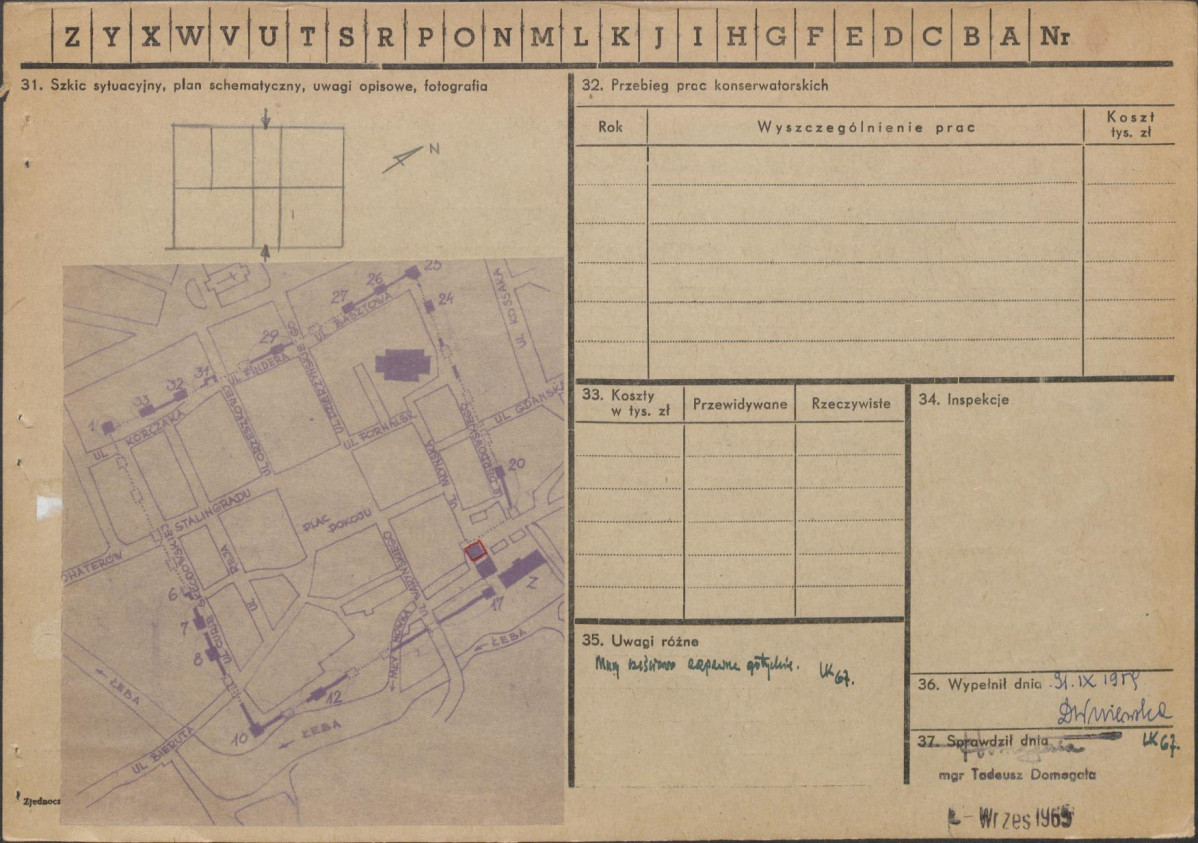 Z Y X W V U T S R P O N M L K J I H G F E D C B A Nr
31. Szkic sytuacyjny, plan schematyczny, uwagi opisowe, fotografia
N
25
26
27
24
UL. BASZTOWA
UL KOSSAKA
29
UL PINDERA
31
32
33
1
UL. KORCZAKA
UL ORZESZKOWEJ
UL GDAŃSKA
20
STALINGRADU
PLAC POKOJU
6
7
8
UL
17
Z
ŁEBA
12
ŁEBA
10
ŁEBA
UL BIERUTA
Zjednocz
32. Przebieg prac konserwatorskich
Rok
Wyszczególnienie prac
Koszt tys. zł
33. Koszty w tys. zł
Przewidywane
Rzeczywiste
34. Inspekcje
35. Uwagi różne
Mury gotyckie. LK 67.
36. Wypełnił dnia
37. Sprawdził dnia
LK 67.
mgr Tadeusz Domagała
Wrzes 1965